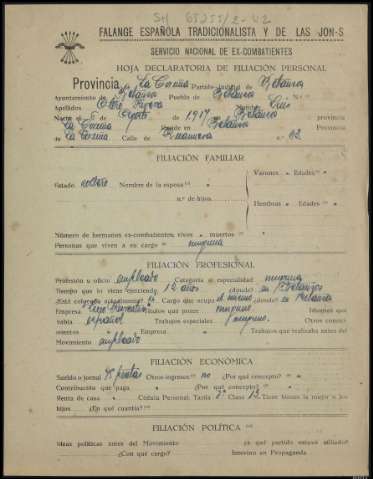 SH 65255/2-42
FALANGE ESPAÑOLA TRADICIONALISTA Y DE LAS JON-S
SERVICIO NACIONAL DE EX-COMBATIENTES
HOJA DECLARATORIA DE FILIACIÓN PERSONAL
Provincia de La Coruña Partido judicial de Betanzos
Ayuntamiento de Betanzos Pueblo de Betanzos
Apellidos Nombre Luis
Nació el 5 de Agosto de 1917 en Betanzos provincia
La Coruña Reside en Betanzos Provincia
La Coruña Calle de Ruanueva n.º 92
FILIACIÓN FAMILIAR
Estado soltero Nombre de la esposa " Varones " Edades "
n.º de hijos Hembras " Edades "
Número de hermanos ex-combatientes vivos " muertos "
Personas que viven a su cargo ninguna
FILIACIÓN PROFESIONAL
Profesión u oficio empleado Categoría o especialidad ninguna
Tiempo que lo viene ejerciendo 12 años (dónde) en Betanzos
¿Está colocado actualmente? si Cargo que ocupa el mismo (dónde) en Betanzos
Empresa Títulos que posee ninguno Idiomas que
habla español Trabajos especiales ninguno Otros conoci-
mientos " Empresa " Trabajos que realizaba antes del
Movimiento empleado
FILIACIÓN ECONÓMICA
Sueldo o jornal pesetas Otros ingresos no ¿Por qué concepto? "
Contribución que paga " ¿Por qué concepto? "
Renta de casa " Cédula Personal, Tarifa Clase 13 Tiene bienes la mujer o los
hijos ¿En qué cuantía?
FILIACIÓN POLÍTICA
Ideas políticas antes del Movimiento ¿a qué partido estuvo afiliado?
¿Con qué cargo? Intervino en Propaganda